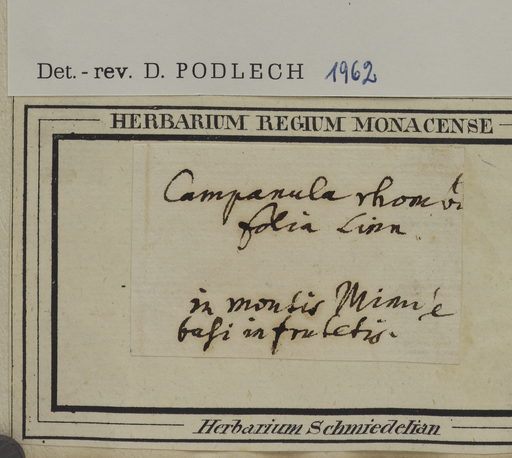 Det. - rev. D. PODLECH 1962
HERBARIUM REGIUM MONACENSE
Campanula
folia Linn
in montis
basi in frutetis.
Herbarium Schmiedelian